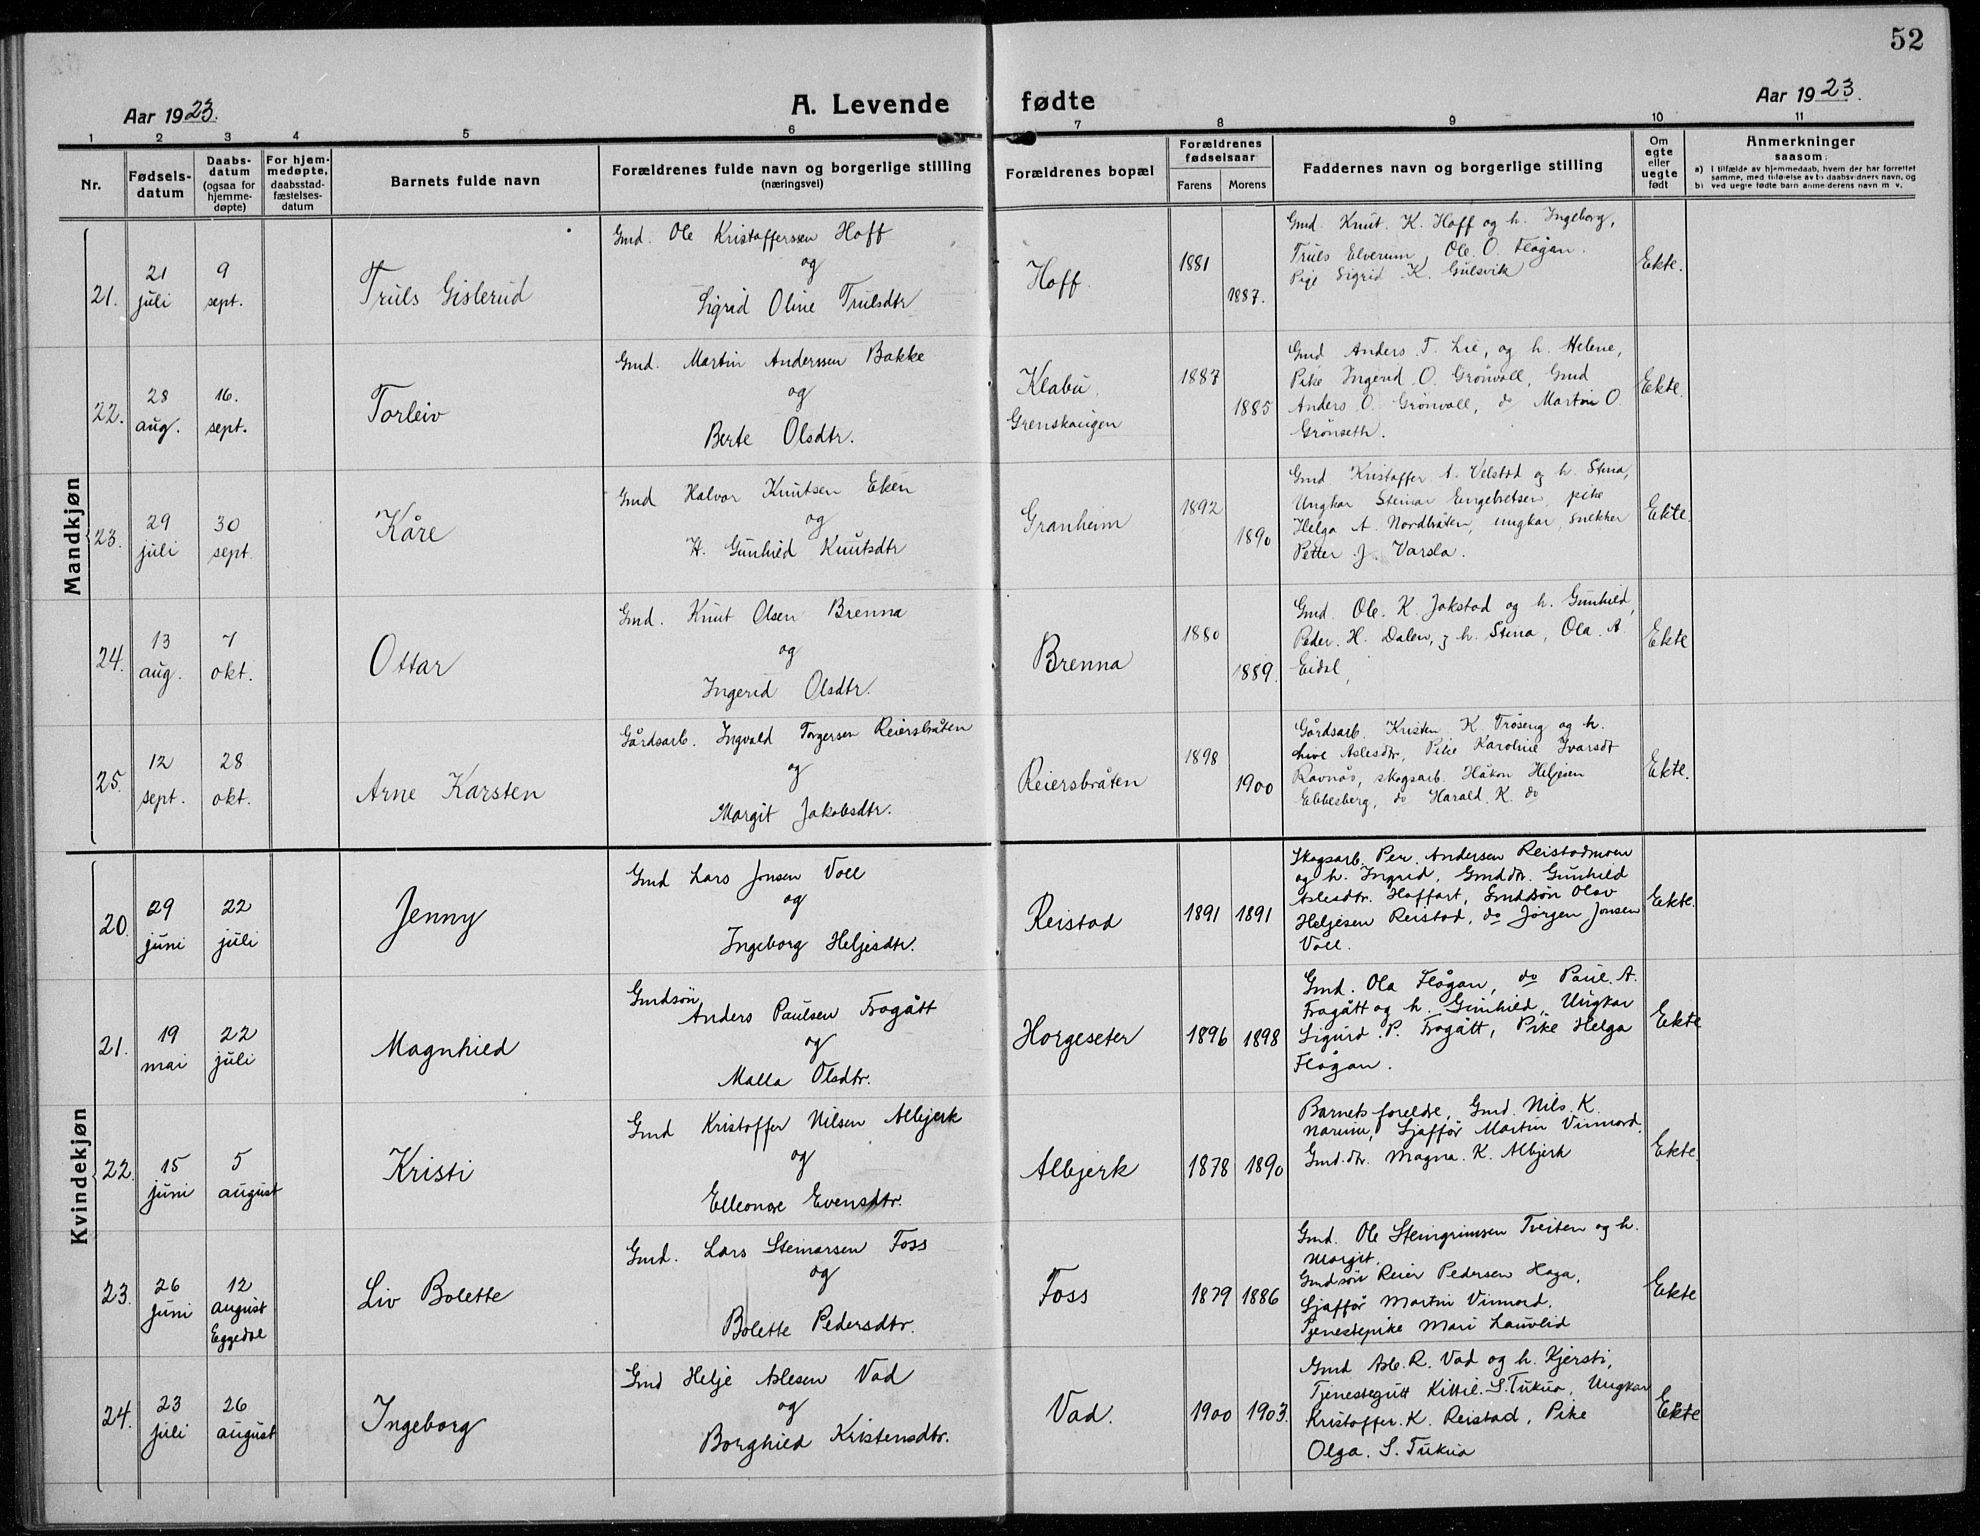 52
Aar 1923.
A. Levende fødte
Aar 1923.
1 2 3 4 5 6 7 8 9 10 11
Nr.
Fødsels-
datum
Daabs-
datum
(ogsaa for
hjemme-
døpte)
For hjem-
medøpte,
daabsstad-
fæstelses-
datum
Barnets fulde navn
Forældrenes fulde navn og borgerlige stilling
(næringsvei)
Forældrenes bopæl
Forældrenes
fødselsaar
Farens Morens
Faddernes navn og borgerlige stilling
Om
egte
eller
uegte
født
Anmerkninger
saasom:
a) I tilfælde av hjemmedaab, hvem der har forrettet
samme, med tilføielse av to daabsvidners navn, og
b) ved uegte fødte barn anmelderens navn m. v.
Mandkjøn
21.
21
juli
9
sept.
Truls Gislerud
Gmd. Ole Kristoffersen Hoff
og
Sigrid Oline Trulsdtr
Hoff.
1881
1887.
Gmd. Knut. K. Hoff og h. Ingeborg,
Truls Elverum, Ole. O. Flågan.
Pige Sigrid K. Gulsvik
Ekte.
22.
28
aug.
16.
sept.
Torleiv
Gmd. Martin Anderssen Bakke
og
Berte Olsdtr.
Klabu
Grenskaugen
1887
1885
Gmd Anders T. Lie, og h. Helene,
Pike Ingerid O. Grønvoll, Gmd
Anders O. Grønvoll, do Martin O.
Grønseth.
Ekte.
23.
29
juli
30
sept.
Kåre
Gmd Halvor Knutsen Eken
og
H. Gunhild Knutsdtr
Granheim
1892
1890
Gmd Kristoffer A. Velstad og h. Stina,
Ungkar Steinar Engebretsen, pike
Helga A. Nordbråten, ungkar, snekker
Petter J. Varsla.
Ekte.
24.
13
aug.
7
okt.
Ottar
Gmd. Knut Olsen Brenna
og
Ingerid Olsdtr.
Brenna
1880
1889.
Gmd. Ole. K. Jokstad og h. Gunhild,
Peder. H. Dalen, og h. Stina, Ola. A.
Eidal,
Ekte
25.
12
sept.
28
okt.
Arne Karsten
Gårdsarb. Ingvald Torgersen Reiersbråten
og
Margit Jakobsdtr.
Reiersbråten
1898
1900
Gårdsarb. Kristen K. Trøseng og h.
Live Aslesdtr, Pike Karoline Ivarsdt
Ravnås, skogsarb. Håkon Heljesen
Ebbesberg, do Harald. K. do
Ekte.
Kvindekjøn
20.
29
juni
22
juli
Jenny
Gmd Lars Jonsen Voll
og
Ingeborg Heljesdtr.
Reistad
1891 1891
Skogsarb. Per. Andersen Reistadmoen
og h. Ingrid, Gmddtr. Gunhild
Aslesdtr. Hoffart, Gmdsøn Olav
Heljesen Reistad, do Jørgen Jonsen
Voll.
Ekte.
21.
19
mai
22
juli
Magnhild
Gmdsøn
Anders Paulsen Frøgått
og
Malla Olsdtr.
Horgeseter
1896 1898
Gmd. Ola Flågan, do Paul. A.
Frogått og h. Gunhild, Ungkar
Sigurd P. Frogått, Pike Helga
Flågan.
Ekte
22.
15
juni
5
august
Kristi
Gmd Kristoffer Nilsen Albjerk
og
Elleonore Evensdtr.
Albjerk
1878 1890
Barnets foreldre, Gmd. Nils. K.
Narum, Sjaffør Martin Vinnord.
Gmd.dtr. Magna. K. Albjerk
Ekte.
23.
26
juni
12
august
Eggedal
Liv Bolette
Gmd. Lars Steinarsen Foss
og
Bolette Pedersdtr.
Foss
1879 1886
Gmd. Ole Steingrimsen Tveiten og h.
Margit.
Gmdsøn Reier Pedersen Haga,
Sjaffør Martin Vinnord.
Tjenestepike Mari Lauvlid
Ekte
24.
23
juli
26
august
Ingeborg
Gmd Helje Aslesen Vad
og
Borghild Kristensdtr.
Vad.
1900 1903.
Gmd Asle. R. Vad og h. Kjersti,
Tjenestegutt Kittil. S. Tukua, Ungkar
Kristoffer. K. Reistad, Pike
Olga. S. Tukua
Ekte